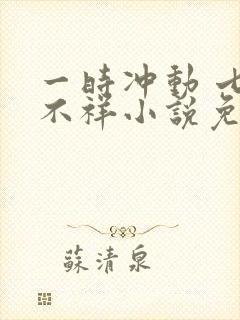 一時冲動 七
不祥小說免
蘇清泉